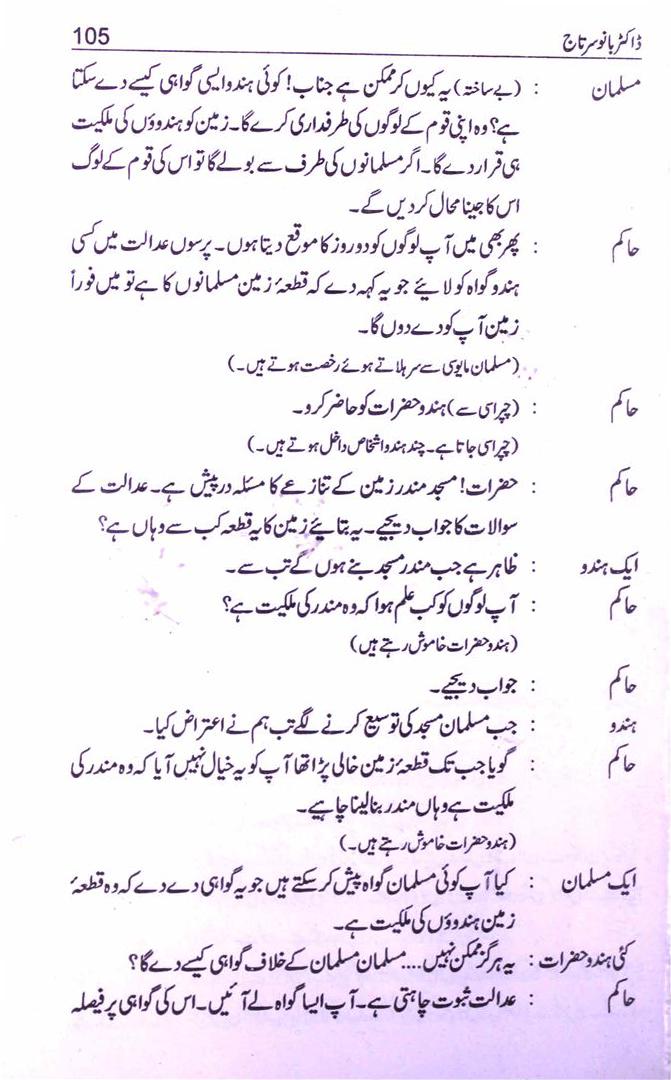 ڈاکٹر بانو سرتاج 105
مسلمان : (بے ساختہ) یہ کیوں کر ممکن ہے جناب! کوئی ہندو ایسی گواہی کیسے دے سکتا
ہے؟ وہ اپنی قوم کے لوگوں کی طرفداری کرے گا۔ زمین کو ہندوؤں کی ملکیت
ہی قرار دے گا۔ اگر مسلمانوں کی طرف سے بولے گا تو اس کی قوم کے لوگ
اس کا جینا محال کر دیں گے۔
حاکم : پھر بھی میں آپ لوگوں کو دو روز کا موقع دیتا ہوں۔ پرسوں عدالت میں کسی
ہندو گواہ کو لائیے جو یہ کہہ دے کہ قطعۂ زمین مسلمانوں کا ہے تو میں فوراً
زمین آپ کو دے دوں گا۔
(مسلمان مایوسی سے سر ہلاتے ہوئے رخصت ہوتے ہیں۔)
حاکم : (چپراسی سے) ہندو حضرات کو حاضر کرو۔
(چپراسی جاتا ہے۔ چند ہندو اشخاص داخل ہوتے ہیں۔)
حاکم : حضرات! مسجد مندر زمین کے تنازعے کا مسئلہ درپیش ہے۔ عدالت کے
سوالات کا جواب دیجیے۔ یہ بتائیے زمین کا یہ قطعہ کب سے وہاں ہے؟
ایک ہندو : ظاہر ہے جب مندر مسجد بنے ہوں گے تب سے۔
حاکم : آپ لوگوں کو کب علم ہوا کہ وہ مندر کی ملکیت ہے؟
(ہندو حضرات خاموش رہتے ہیں)
حاکم : جواب دیجیے۔
ہندو : جب مسلمان مسجد کی توسیع کرنے لگے تب ہم نے اعتراض کیا۔
حاکم : گویا جب تک قطعۂ زمین خالی پڑا تھا آپ کو یہ خیال نہیں آیا کہ وہ مندر کی
ملکیت ہے وہاں مندر بنا لینا چاہیے۔
(ہندو حضرات خاموش رہتے ہیں۔)
ایک مسلمان : کیا آپ کوئی مسلمان گواہ پیش کر سکتے ہیں جو یہ گواہی دے دے کہ وہ قطعۂ
زمین ہندوؤں کی ملکیت ہے۔
کئی ہندو حضرات : یہ ہرگز ممکن نہیں .... مسلمان مسلمان کے خلاف گواہی کیسے دے گا؟
حاکم : عدالت ثبوت چاہتی ہے۔ آپ ایسا گواہ لے آئیں۔ اس کی گواہی پر فیصلہ